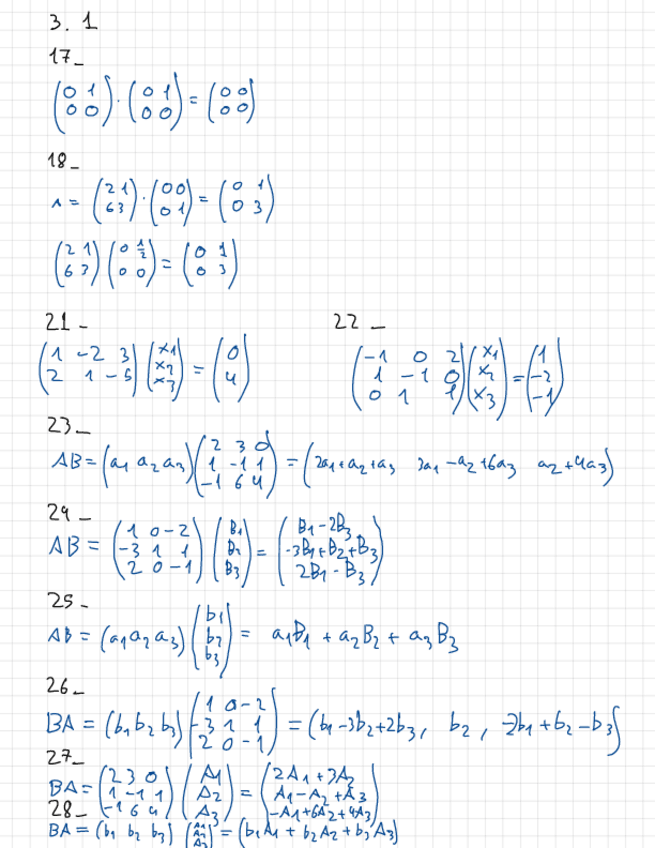 3. 1
17_
(0 1; 0 0) · (0 1; 0 0) = (0 0; 0 0)
18_
A = (2 1; 6 3) · (0 0; 0 1) = (0 1; 0 3)
(2 1; 6 3) (0 1/2; 0 0) = (0 1; 0 3)
21_ 22_
(1 -2 3; 2 1 -5) (x1; x2; x3) = (0; 4) (-1 0 2; 1 -1 0; 0 1 1) (x1; x2; x3) = (1; -2; -1)
23_
AB = (a1 a2 a3) (2 3 0; 1 -1 1; -1 6 4) = (2a1+a2+a3 3a1-a2+6a3 a2+4a3)
24_
AB = (1 0 -2; -3 1 1; 2 0 -1) (B1; B2; B3) = (B1-2B3; -3B1+B2+B3; 2B1-B3)
25_
AB = (a1 a2 a3) (b1; b2; b3) = a1B1 + a2B2 + a3B3
26_
BA = (b1 b2 b3) (1 0 -2; -3 1 1; 2 0 -1) = (b1-3b2+2b3, b2, -2b1+b2-b3)
27_
BA = (2 3 0; 1 -1 1; -1 6 4) (A1; A2; A3) = (2A1+3A2; A1-A2+A3; -A1+6A2+4A3)
28_
BA = (b1 b2 b3) (A1; A2; A3) = (b1A1 + b2A2 + b3A3)